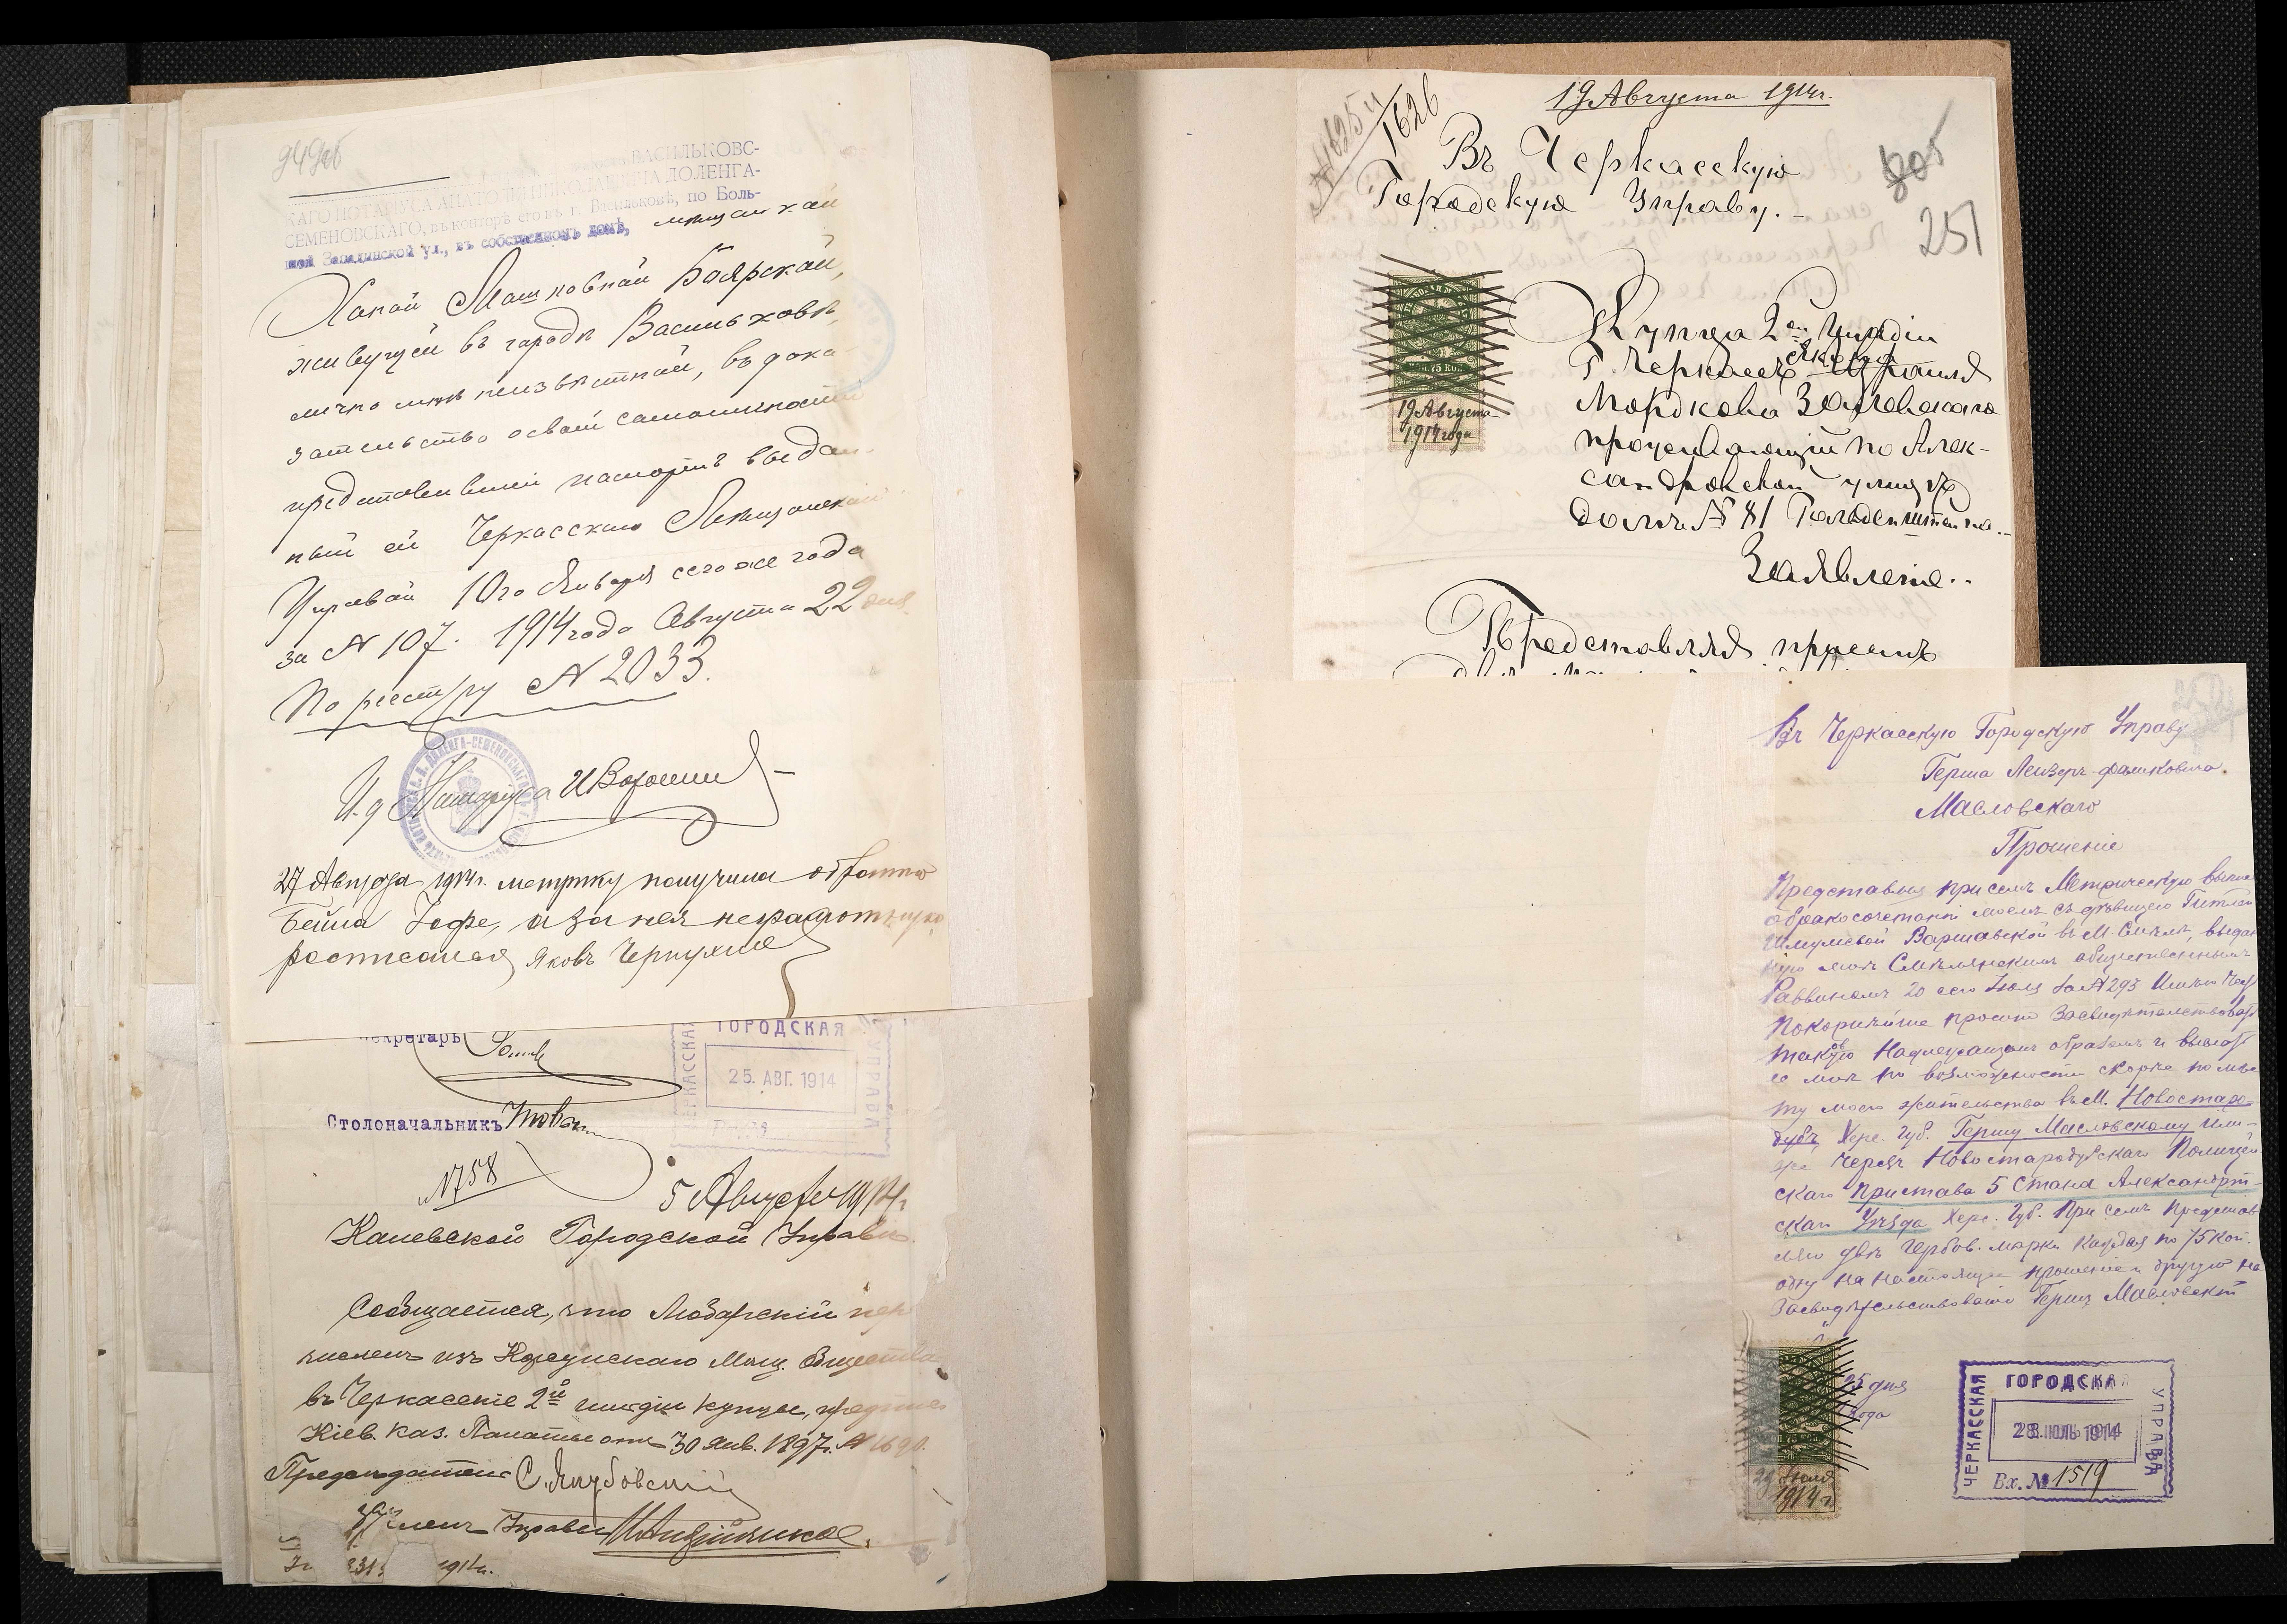 949 об
ВАСИЛЬКОВС-
КАГО НОТАРІУСА АНАТОЛІЯ НИКОЛАЕВИЧА ДОЛЕНГА-
СЕМЕНОВСКАГО, въ конторѣ его въ г. Васильковѣ, по Боль-
шой Ул., въ собственномъ домѣ, мѣщанкой
Ханой Мошковной Боярской,
живущей въ городѣ Васильковѣ,
лично мнѣ неизвѣстной, въ дока-
зательство своей самоличности
представившей паспортъ выдан-
ный ей Черкасскою Мѣщанской
Управой 10го Января сего же года
за № 107. 1914 года Августа 22 дня.
По реестру № 2033.
И. д Нотаріуса И Воронин
27 Августа 1914 г. метрику получила обратно
Бейла Іофе, а за нея неграмотную
росписался Яковъ Чернухин
Секретарь
Столоначальникъ
ЧЕРКАССКАЯ ГОРОДСКАЯ УПРАВА
25. АВГ. 1914
№ 758
5 Августа 1914 г.
Каневской Городской Управѣ.
Сообщается, что Любарскій пере
численъ изъ Корсунскаго Мѣщ. Общества
въ Черкасскіе 2й гильдіи купцы, предпис
Кіев. Каз. Палаты отъ 30 Янв. 1897 г. № 1690.
Предсѣдатель С. Якубовскій
Членъ Управы
1914 г.
19 Августа 1914 г.
№ 1625 и
1626
Въ Черкасскую
Городскую Управу.-
805
251
Купца 2ой Гильдіи
Г. Черкассъ Израиля
Мордкова Заславскаго
проживающій по Алек-
сандровской улицѣ
домъ № 81 Гольденштейна..
Заявленіе..
75 КОП.
19 Августа
1914 года
Представляя присемъ
Въ Черкасскую Городскую Управу
Герша Лейзеръ-Фашковича
Масловскаго
Прошеніе
Представляя при семъ Метрическую выпис
о бракосочетаніи моемъ съ дѣвицею Гитлей
Шмулевой Варшавской въ М. Смѣлѣ, выдан
ную мнѣ Смѣлянскимъ общественнымъ
Раввиномъ 20 сего Іюля за № 293 Имѣю Честь
Покорнѣйше просить Засвидѣтельствовать
таковую Надлежащимъ образомъ и выслать
ее мнѣ по возможности скорѣе по мѣс
ту моего жительства въ М. Новостаро-
дубъ Хер. Губ. Гершу Масловскому или-
же Черезъ Новостародубскаго Полицей
скаго Пристава 5 Стана Александрій-
скаго Уѣзда Херс. Губ. При семъ Представ
ляю двѣ Гербов. марки Каждая по 75 коп.
одну на настоящее прошеніе и другую на
Засвидѣтельствованіе Гершъ Масловскій
25 дня
года
75 КОП.
29 Іюля
1914 г.
ЧЕРКАССКАЯ ГОРОДСКАЯ УПРАВА
28. ІЮЛЬ 1914
Вх. № 1519